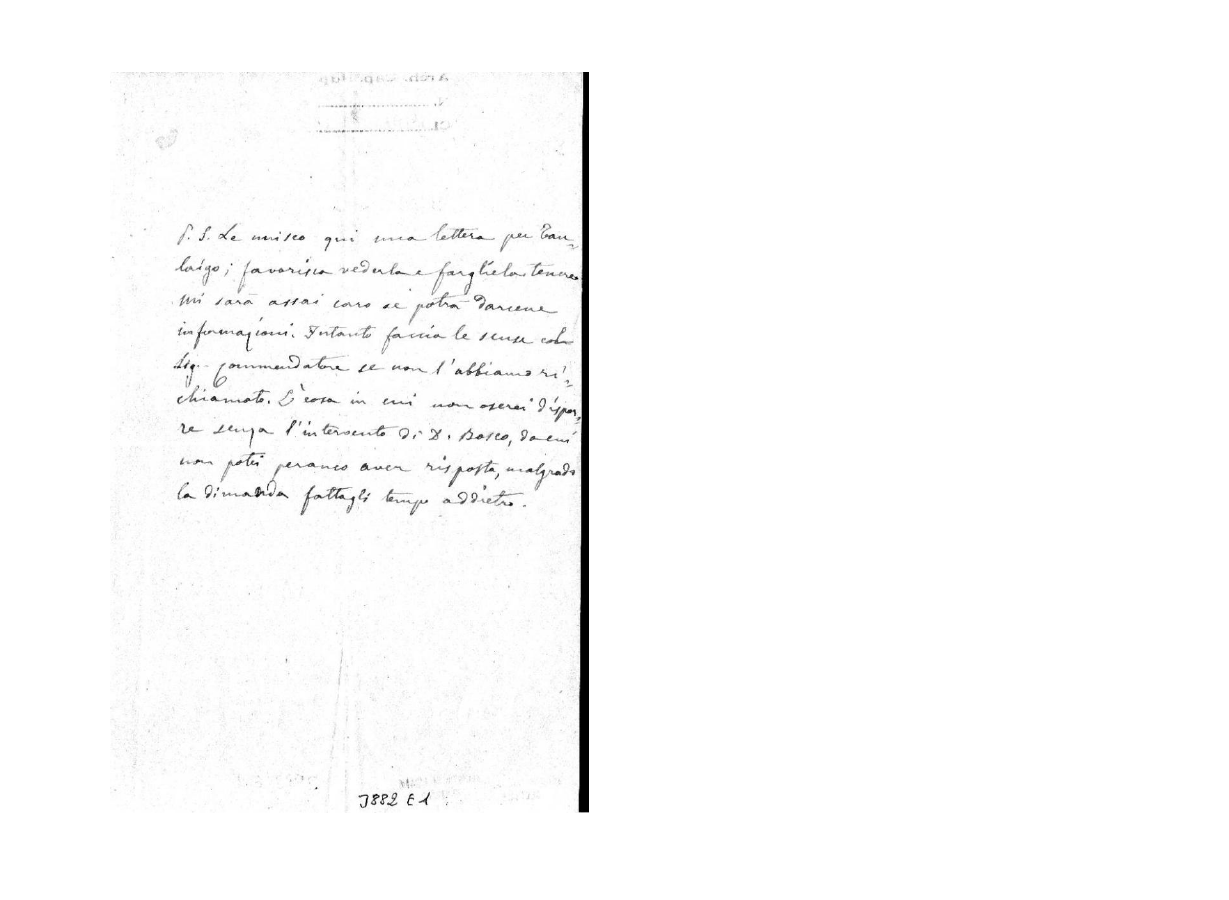 P. S. Le unisco qui una lettera per Tau-
laigo; favorisca vederla e fargliela tenere
Mi sarà assai caro se potrà darcene
informazioni. Intanto faccia le scuse col
Sig. Commendatore se non l'abbiamo ri-
chiamato. È cosa in cui non oserei dispor-
re senza l'intervento di D. Bosco, da cui
non potei peranco aver risposta, malgrado
la dimanda fattagli tempo addietro.
3882 E 1